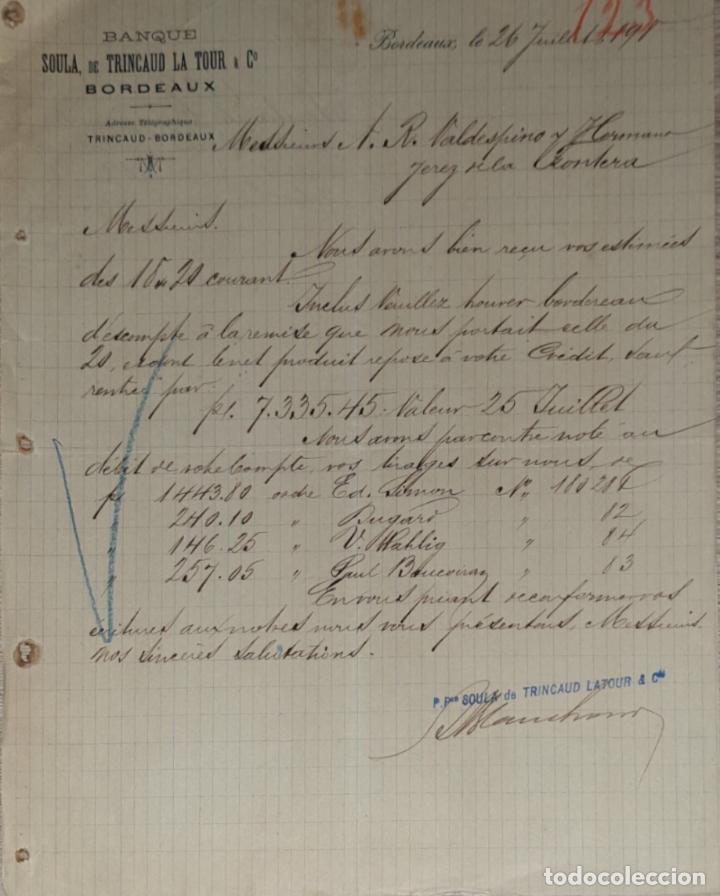 123
BANQUE
SOULA, DE TRINCAUD LA TOUR & Cº
BORDEAUX
Adresse Télégraphique
TRINCAUD-BORDEAUX
Bordeaux, le 26 Juillet
Messieurs A. R. Valdespino y Hermano
Jerez de la Frontera
Messieurs.
Nous avons bien reçu vos estimées
des 18 & 20 courant.
Inclus veuillez trouver bordereau
d'escompte à la remise que nous portait celle du
20, et dont le net produit repose à votre Crédit, sauf
rentrée par:
pt. 7.335.45. Valeur 25 Juillet
Nous avons par contre noté au
débit de votre Compte, vos tirages sur nous, de
pt 1443.80 ordre Ed. Simon Nº
" 240.10 " Bugard " 82
" 146.25 " V. Wahlig " 84
" 257.05 " Paul " 83
En vous priant de conformer vos
écritures aux notres nous vous présentons, Messieurs
nos sincères salutations.
P. Pon SOULA de TRINCAUD LATOUR & Cie
todocoleccion
todocoleccion.net